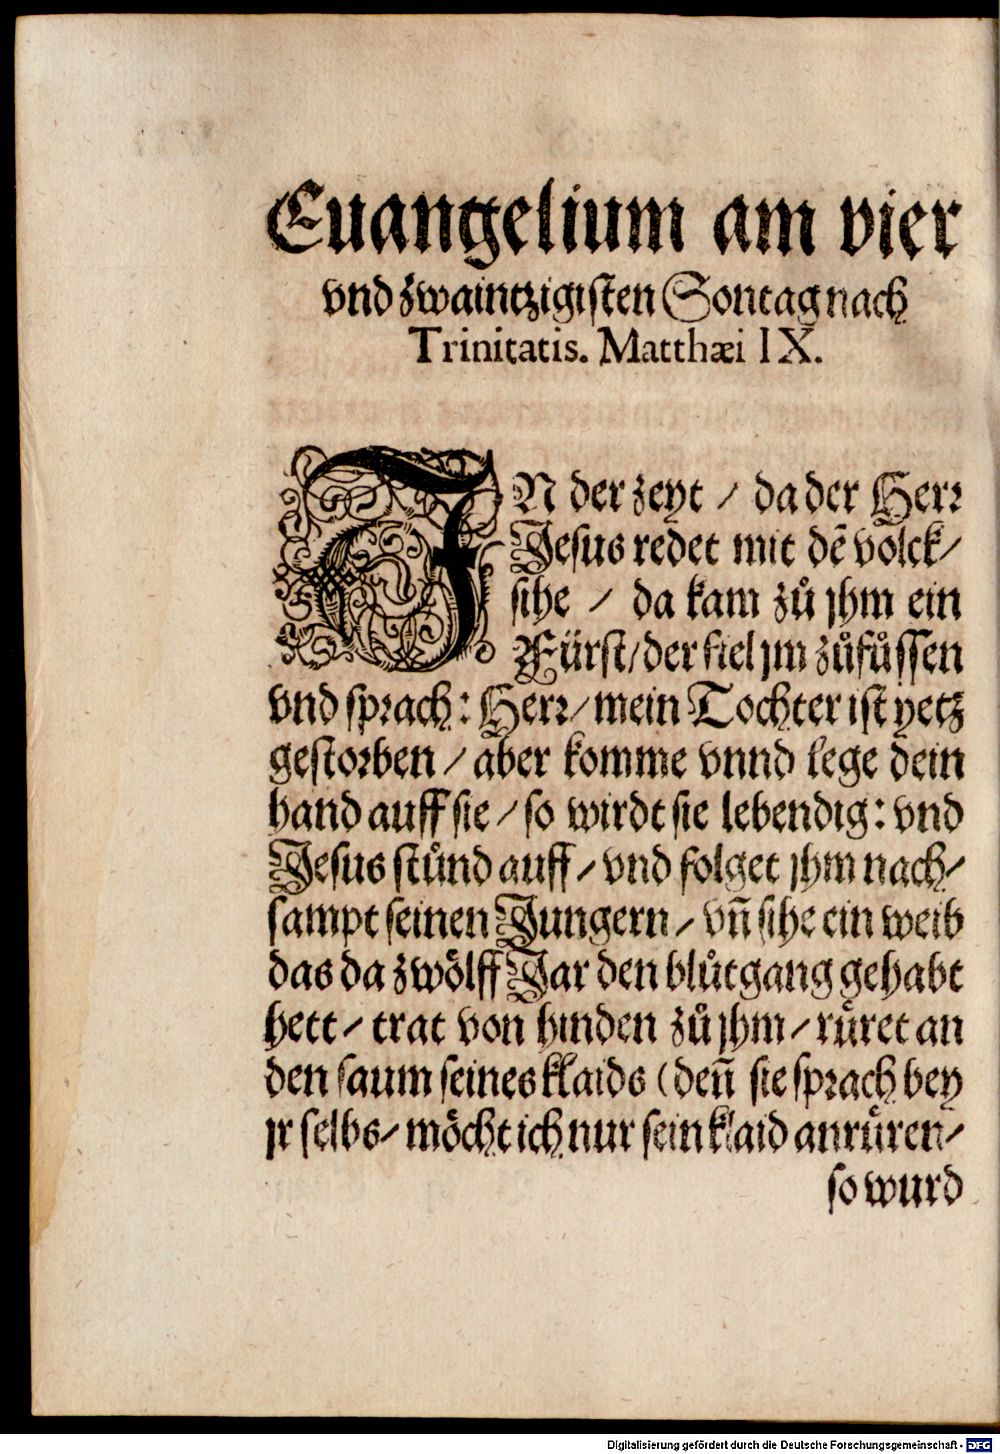 Euangelium am vier
vnd zwaintzigisten Sontag nach
Trinitatis. Matthæi IX.
IN der zeyt / da der Herr
Jesus redet mit dẽ volck/
sihe / da kam zů jhm ein
Fürst/der fiel jm zůfůssen
vnd sprach: Herr/mein Tochter ist yetz
gestorben / aber komme vnnd lege dein
hand auff sie / so wirdt sie lebendig: vnd
Jesus stůnd auff / vnd folget jhm nach/
sampt seinen Jungern / vñ sihe ein weib
das da zwölff Jar den blůtgang gehabt
hett / trat von hinden zů jhm / růret an
den saum seines klaids (deñ sie sprach bey
jr selbs/ möcht ich nur sein klaid anrůren/
so wurd
Digitalisierung gefördert durch die Deutsche Forschungsgemeinschaft - DFG